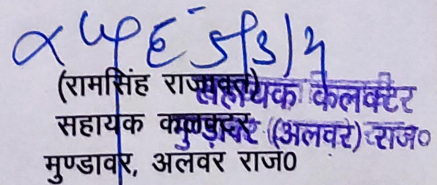 (रामसिंह राजावत)
सहायक कलक्टर
मुण्डावर, अलवर राज0
सहायक कलक्टर
मुण्डावर (अलवर) राज०